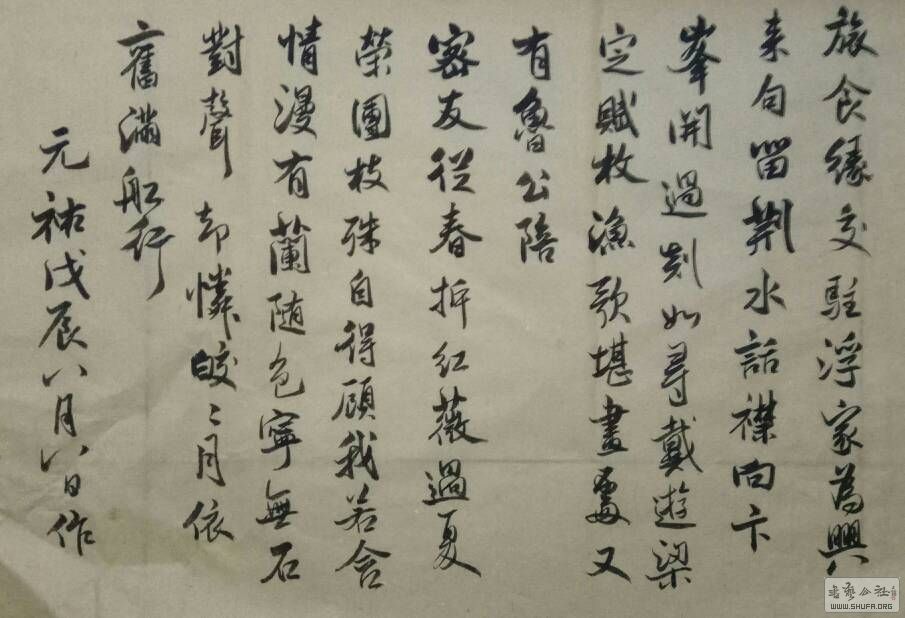 旅食緣交駐浮家為興
来句留荆水話襟向卞
峯開過剡如尋戴遊梁
定賦枚漁歌堪畫處又
有魯公陪
密友從春拆紅薇過夏
榮團枝殊自得顧我若含
情漫有蘭随色寧無石
對聲却憐皎〻月依
〻舊滿船行
元祐戊辰八月八日作
書藝公社
WWW.SHUFA.ORG